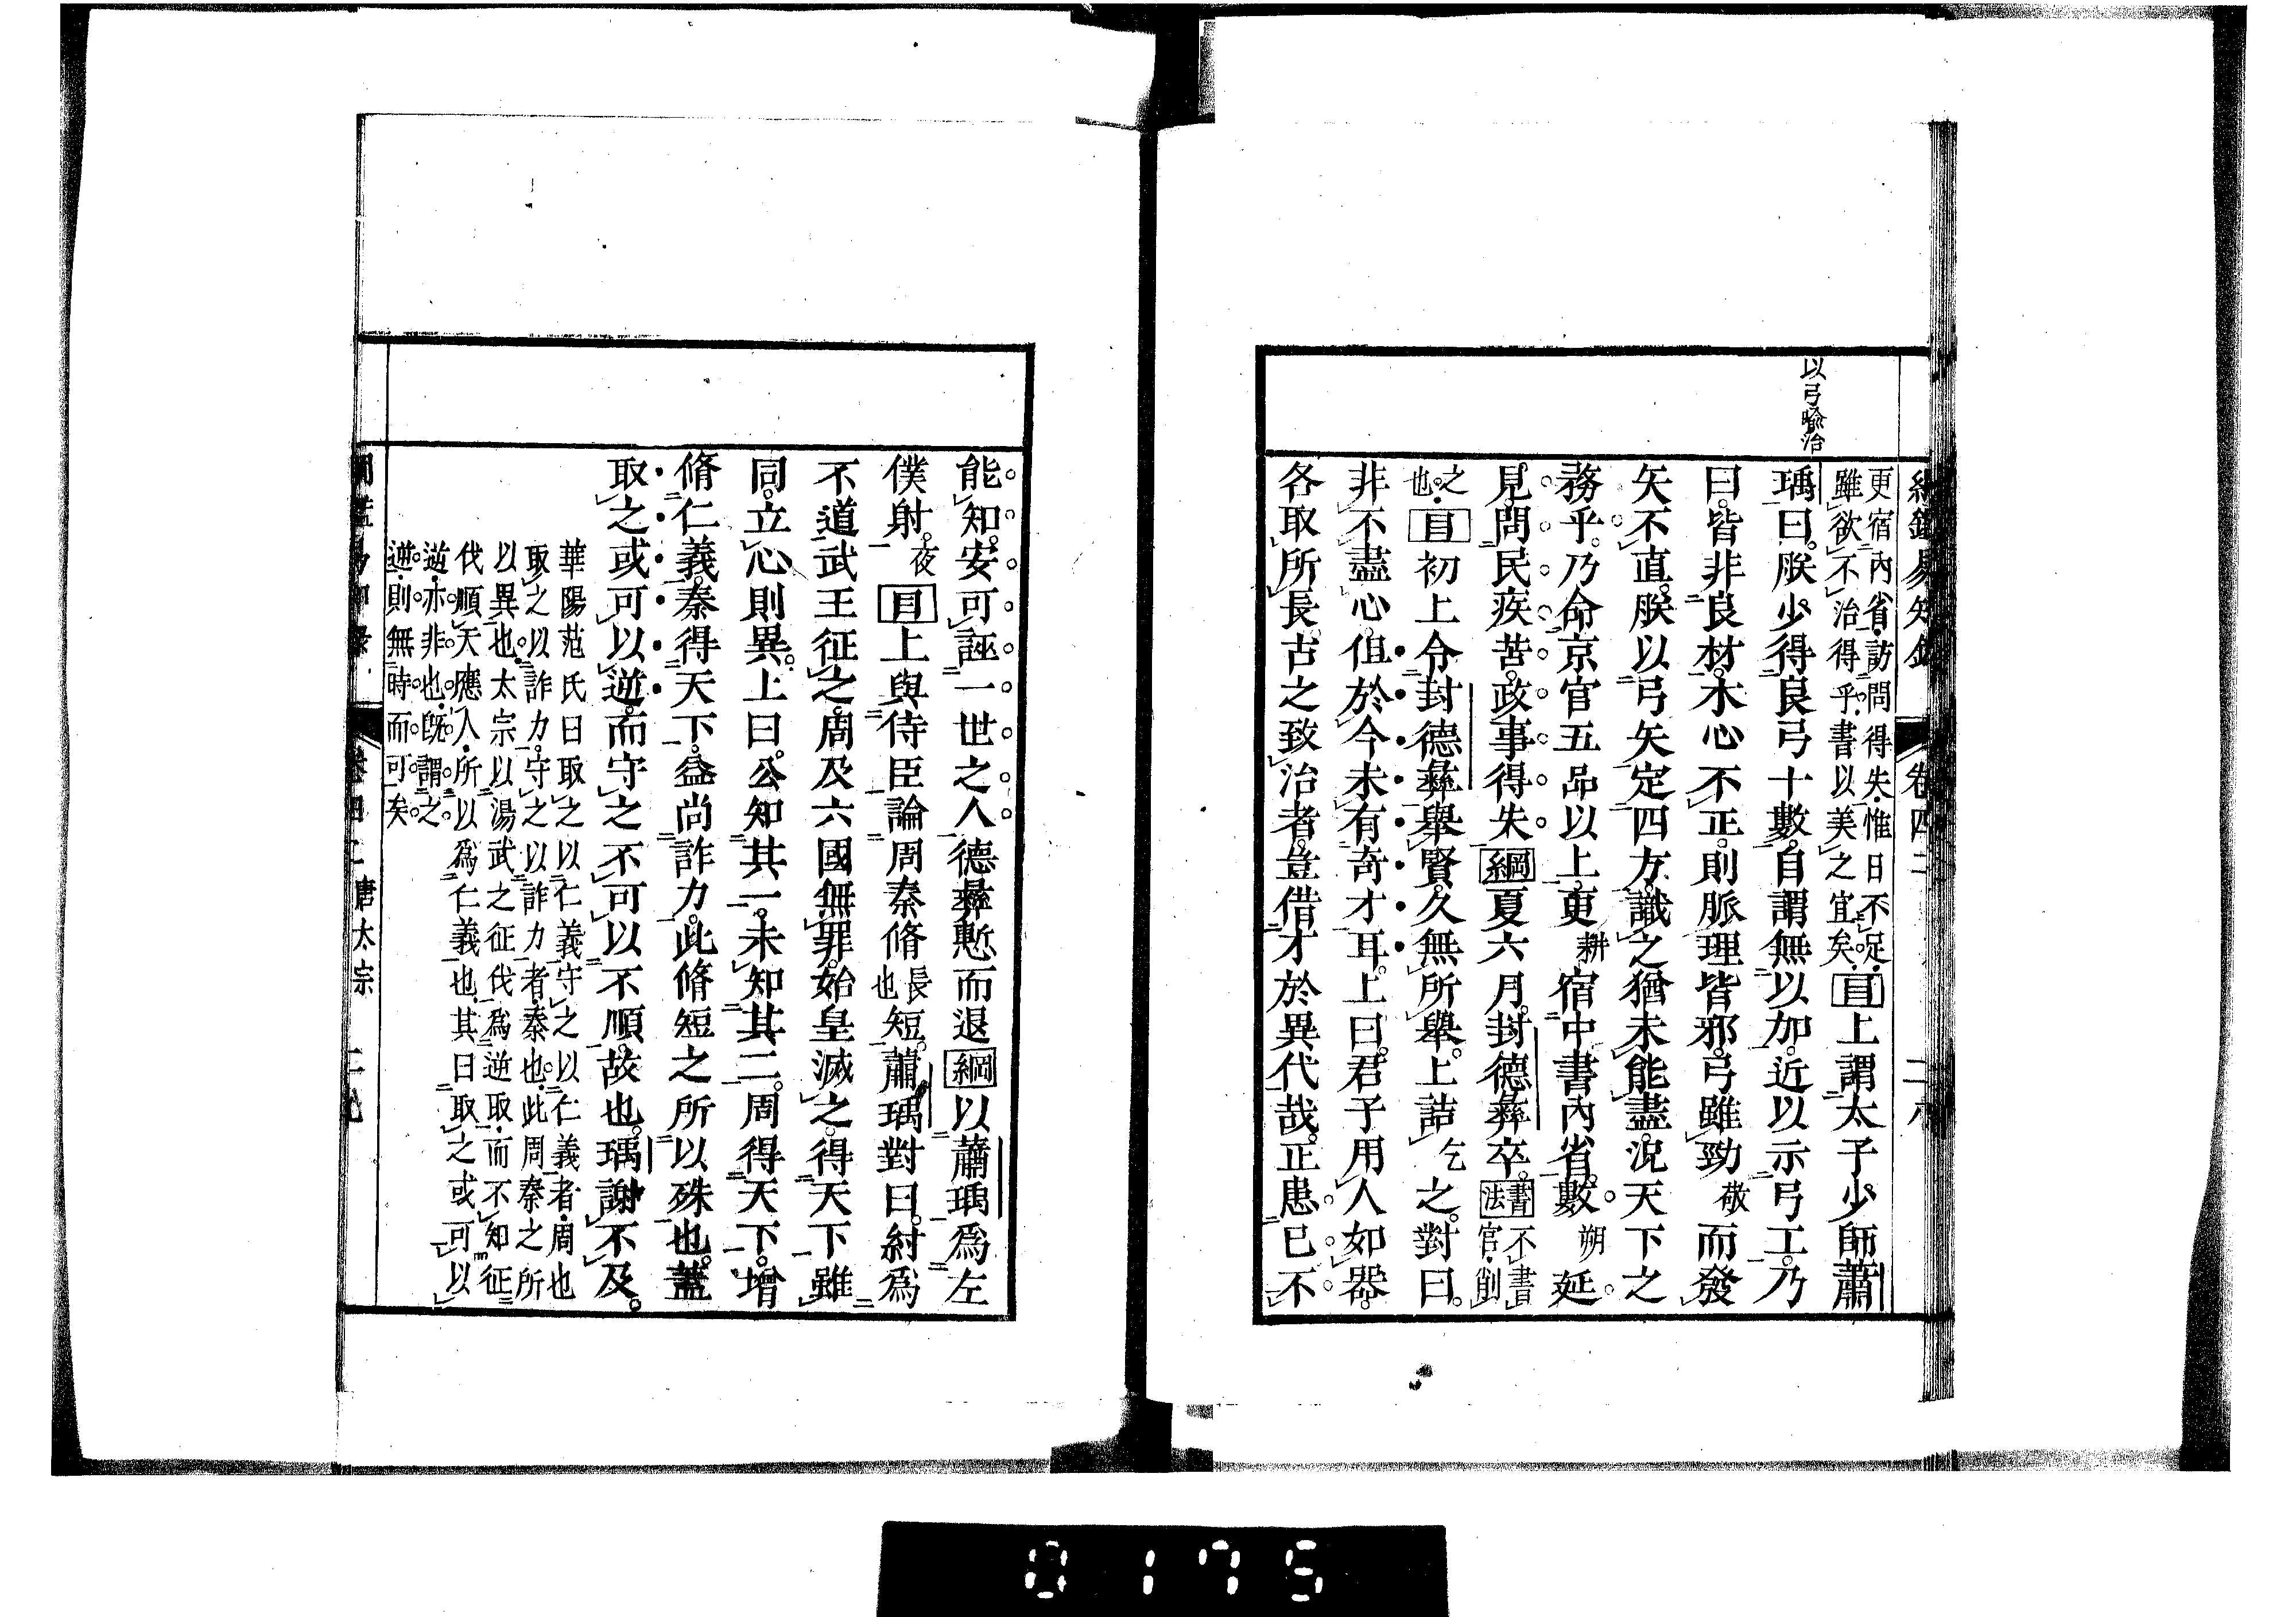 綱鑑易知錄 卷四二 二八
以弓喩治
更宿內省訪問得失惟日不足
雖欲不治得乎書以美之宜矣
目上謂太子少師蕭
瑀曰朕少得良弓十數自謂無以加近以示弓工乃
曰皆非良材木心不正則脈理皆邪弓雖勁敬而發
矢不直朕以弓矢定四方識之猶未能盡況天下之
務乎乃命京官五品以上更耕宿中書內省數朔延
見問民疾苦政事得失綱夏六月封德彝卒書法不書官削
之也目初上令封德彝舉賢久無所舉上詰乞之對曰
非不盡心但於今未有奇才耳上曰君子用人如器
各取所長古之致治者豈借才於異代哉正患已不
能知安可誣一世之人德彝慙而退綱以蕭瑀爲左
僕射夜目上與侍臣論周秦脩長也短蕭瑀對曰紂爲
不道武王征之周及六國無罪始皇滅之得天下雖
同立心則異上曰公知其一未知其二周得天下增
脩仁義秦得天下益尚詐力此脩短之所以殊也蓋
取之或可以逆而守之不可以不順故也瑀謝不及
華陽范氏曰取之以仁義守之以仁義者周也
取之以詐力守之以詐力者秦也此周秦之所
以異也太宗以湯武之征伐爲逆取而不知征
伐順天應人所以爲仁義也其曰取之或可以
逆亦非也旣謂之
逆則無時而可矣
卷四二 唐太宗 二九
0175